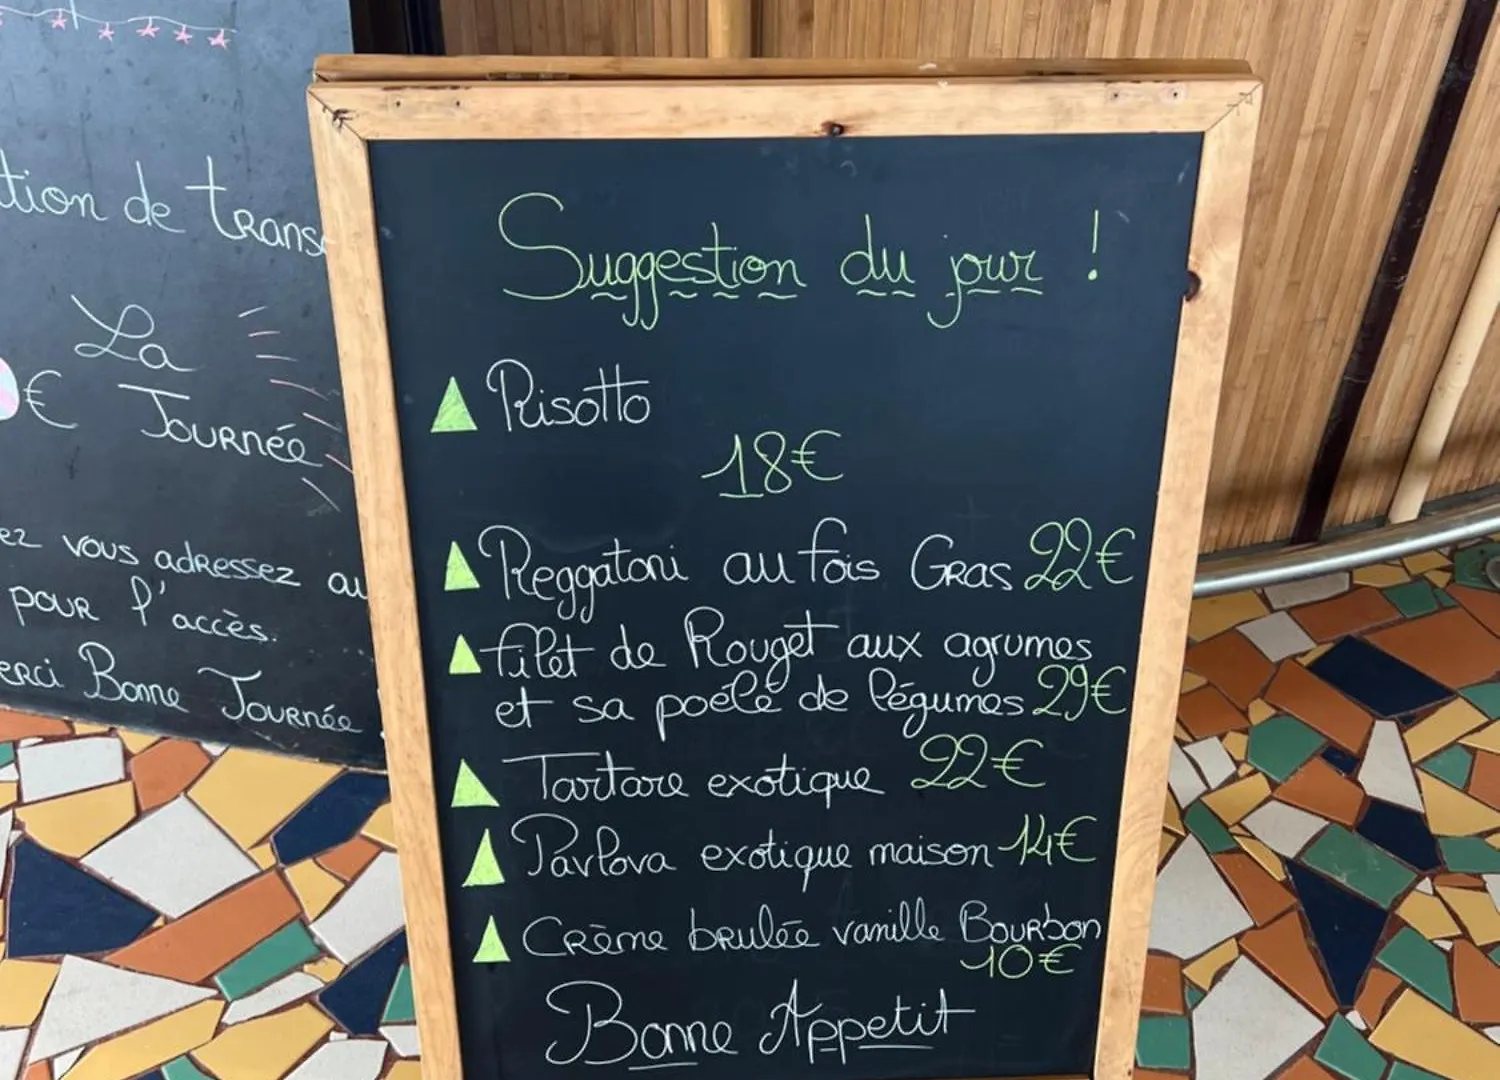 tion de trans
La
€ Journée
ez vous adressez au
pour l'accès.
erci Bonne Journée
Suggestion du jour !
Risotto
18€
Reggatoni au fois Gras 22€
filet de Rouget aux agrumes
et sa poélé de légumes 29€
Tartare exotique 22€
Pavlova exotique maison 14€
Crème brulée vanille Bourbon
10€
Bonne Appetit